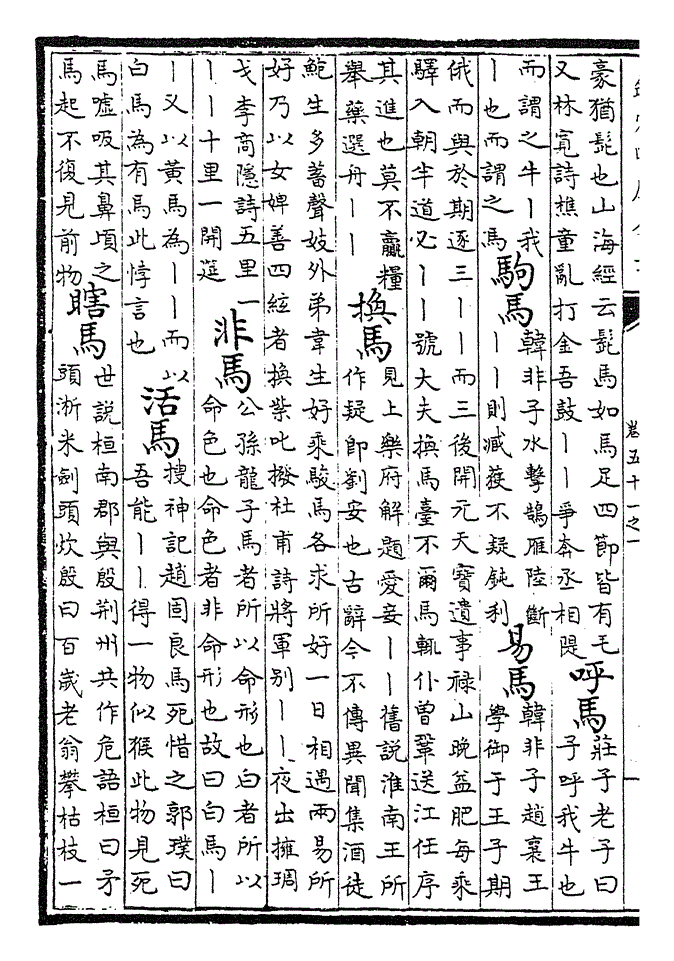 卷五十一之一
豪猶髭也山海經云髭馬如馬足四節皆有毛
又林寛詩樵童亂打金吾鼓丨丨爭奔丞相隄
呼馬
莊子老子曰
子呼我牛也
而謂之牛丨我
丨也而謂之馬
駒馬
韓非子水擊鵠雁陸斷
丨丨則臧𫉬不疑鈍利
易馬
韓非子趙襄王
學御于王子期
俄而與於期逐三丨丨丨而三後開元天寶遺事祿山晚益肥每乘
驛入朝半道必丨丨號大夫換馬臺不爾馬輒仆曾鞏送江任序
其進也莫不贏糧
舉藥選舟丨丨
換馬
見上樂府解題愛妾丨丨舊説淮南王所
作疑卽劉安也古辭今不傳異聞集酒徒
鮑生多蓄聲妓外弟韋生好乘駿馬各求所好一日相遇兩易所
好乃以女婢善四絃者換紫叱撥杜甫詩將軍别丨丨夜出擁琱
戈李商隱詩五里一
丨丨十里一開筵
非馬
公孫龍子馬者所以命形也白者所以
命色也命色者非命形也故曰白馬丨
丨又以黃馬為丨丨而以
白馬為有馬此悖言也
活馬
搜神記趙固良馬死惜之郭璞曰
吾能丨丨得一物似猴此物見死
馬噓吸其鼻頃之
馬起不復見前物
瞎馬
世説桓南郡與殷荆州共作危語桓曰矛
頭淅米劍頭炊殷曰百歲老翁攀枯枝一